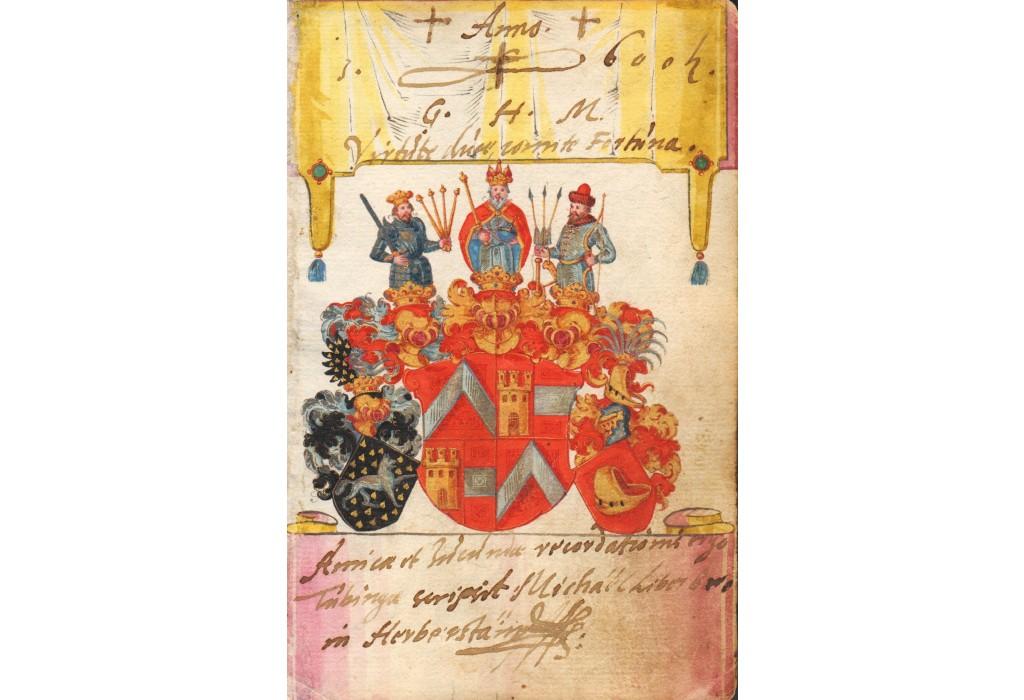 Anno.
1. 6 0 4.
G. H. M.
Virtute duce, comite Fortuna.
Amicæ et Iucundæ recordationis ergo
Tübingæ scripsit Michaël Liber Baro
in Herberstäin